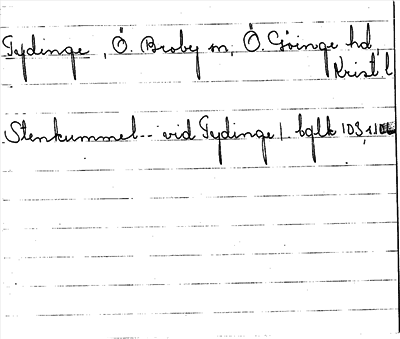 Tydinge, Ö. Broby sn, Ö. Göinge hd,
Krist. l
Stenkummel -- vid Tydinge | bglk 103,